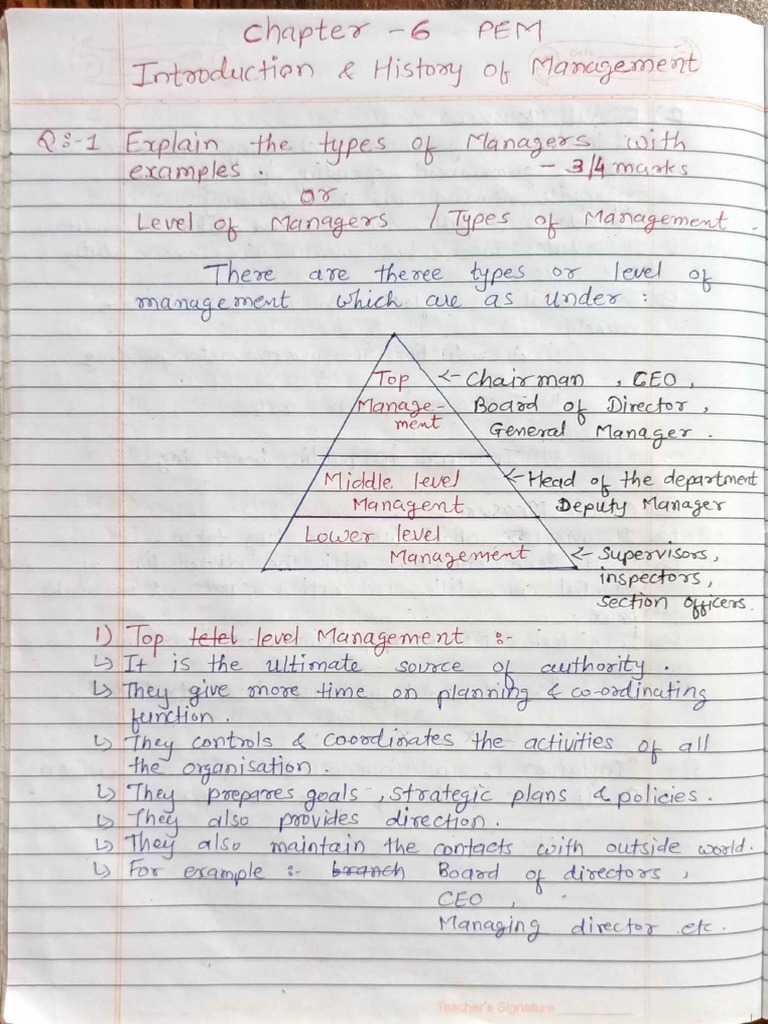 Chapter -6 PEM
Introduction & History of Management
Q:-1 Explain the types of Managers with
examples. - 3/4 marks
Or
Level of Managers / Types of Management.
There are theree types or level of
management which are as under :
Top
Manage-
ment
<- Chairman , CEO ,
Board of Director ,
General Manager .
Middle level
Managent
<- Head of the department
Deputy Manager
Lower level
Management
<- Supervisors,
inspectors,
section officers.
1) Top tetel level Management :-
↳ It is the ultimate source of authority .
↳ They give more time on planning & co-ordinating
function .
↳ They controls & coordinates the activities of all
the organisation .
↳ They prepares goals , strategic plans & policies .
↳ They also provides direction .
↳ They also maintain the contacts with outside world.
↳ For example :- branch Board of directors ,
CEO ,
Managing director etc.
Teacher's Signature